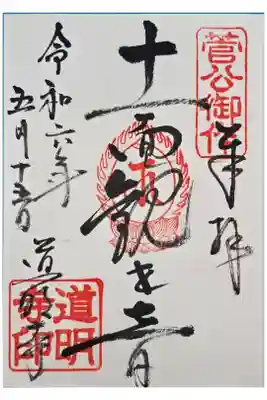 菅公御作
奉拝
十一面観世音
令和六年
五月十
道明寺
道明寺印